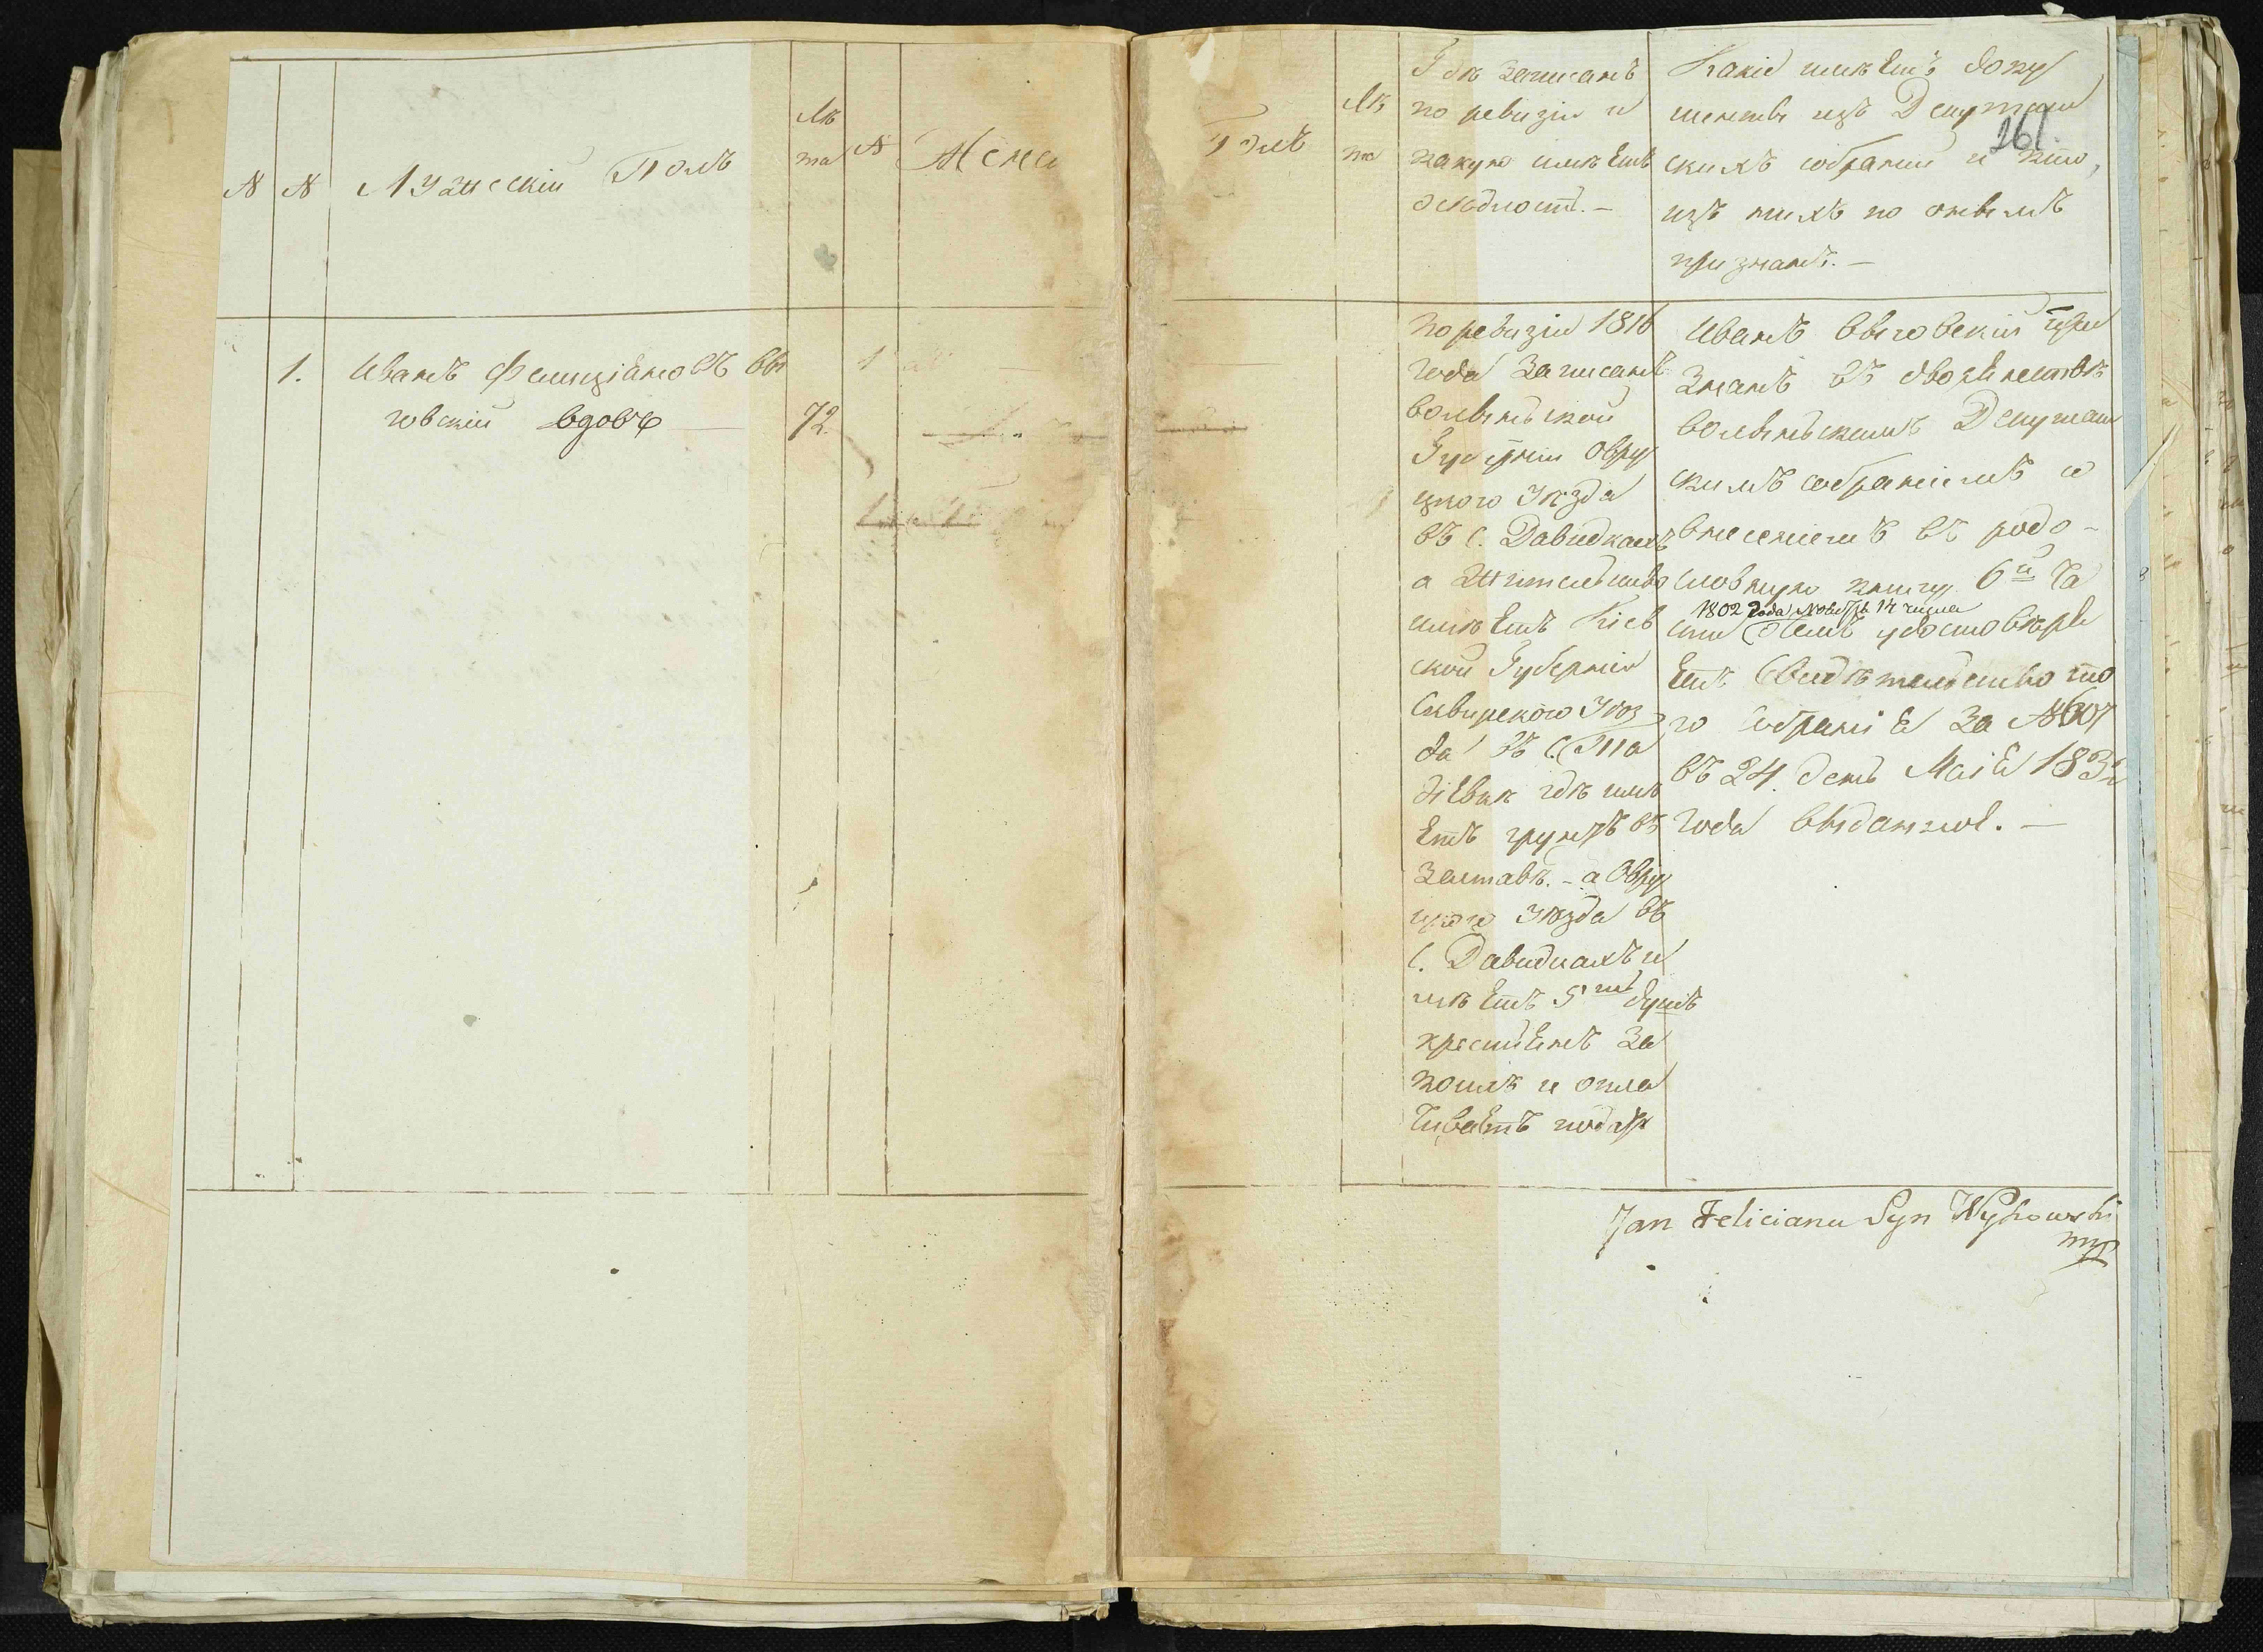 N N Мужескій Полъ Лѣ
та N Женс
Полъ Лѣ
та
Гдѣ записанъ
по ревизіи и
какую имѣетъ
оседлость. —
Какіе имѣетъ доку
менты изъ Депутат
скихъ собраній и кто,
изъ нихъ по онымъ
признанъ. —
261.
1. Иванъ Фелиціановъ Вы
говскій вдовъ — 72.
1
По ревизіи 1816
года записанъ
Волынской
Губерніи Овру
цкого уѣзда
въ с. Давидкахъ
а жительство
имѣетъ Кіев
ской Губерніи
Сквирского уѣз
да въ с.
гдѣ имѣ
етъ грунтъ въ
заставѣ. — а Овру
цкого уѣзда въ
с. Давидкахъ и
мѣетъ 5ть душъ
крестьянъ за
коихъ и опла
чиваетъ подат
Иванъ Выговскій при
знанъ въ дворянствѣ
Волынскимъ Депутат
скимъ собраніемъ и
внесеніемъ въ родо-
словную книгу 6й ча
1802 года Ноября 14 числа
сти чемъ удостовѣря
етъ Свидѣтельство то
го Собранія за N607
въ 24. день Маія 1832
года выданное. —
Jan Feliciana Syn Wyhowski
mp